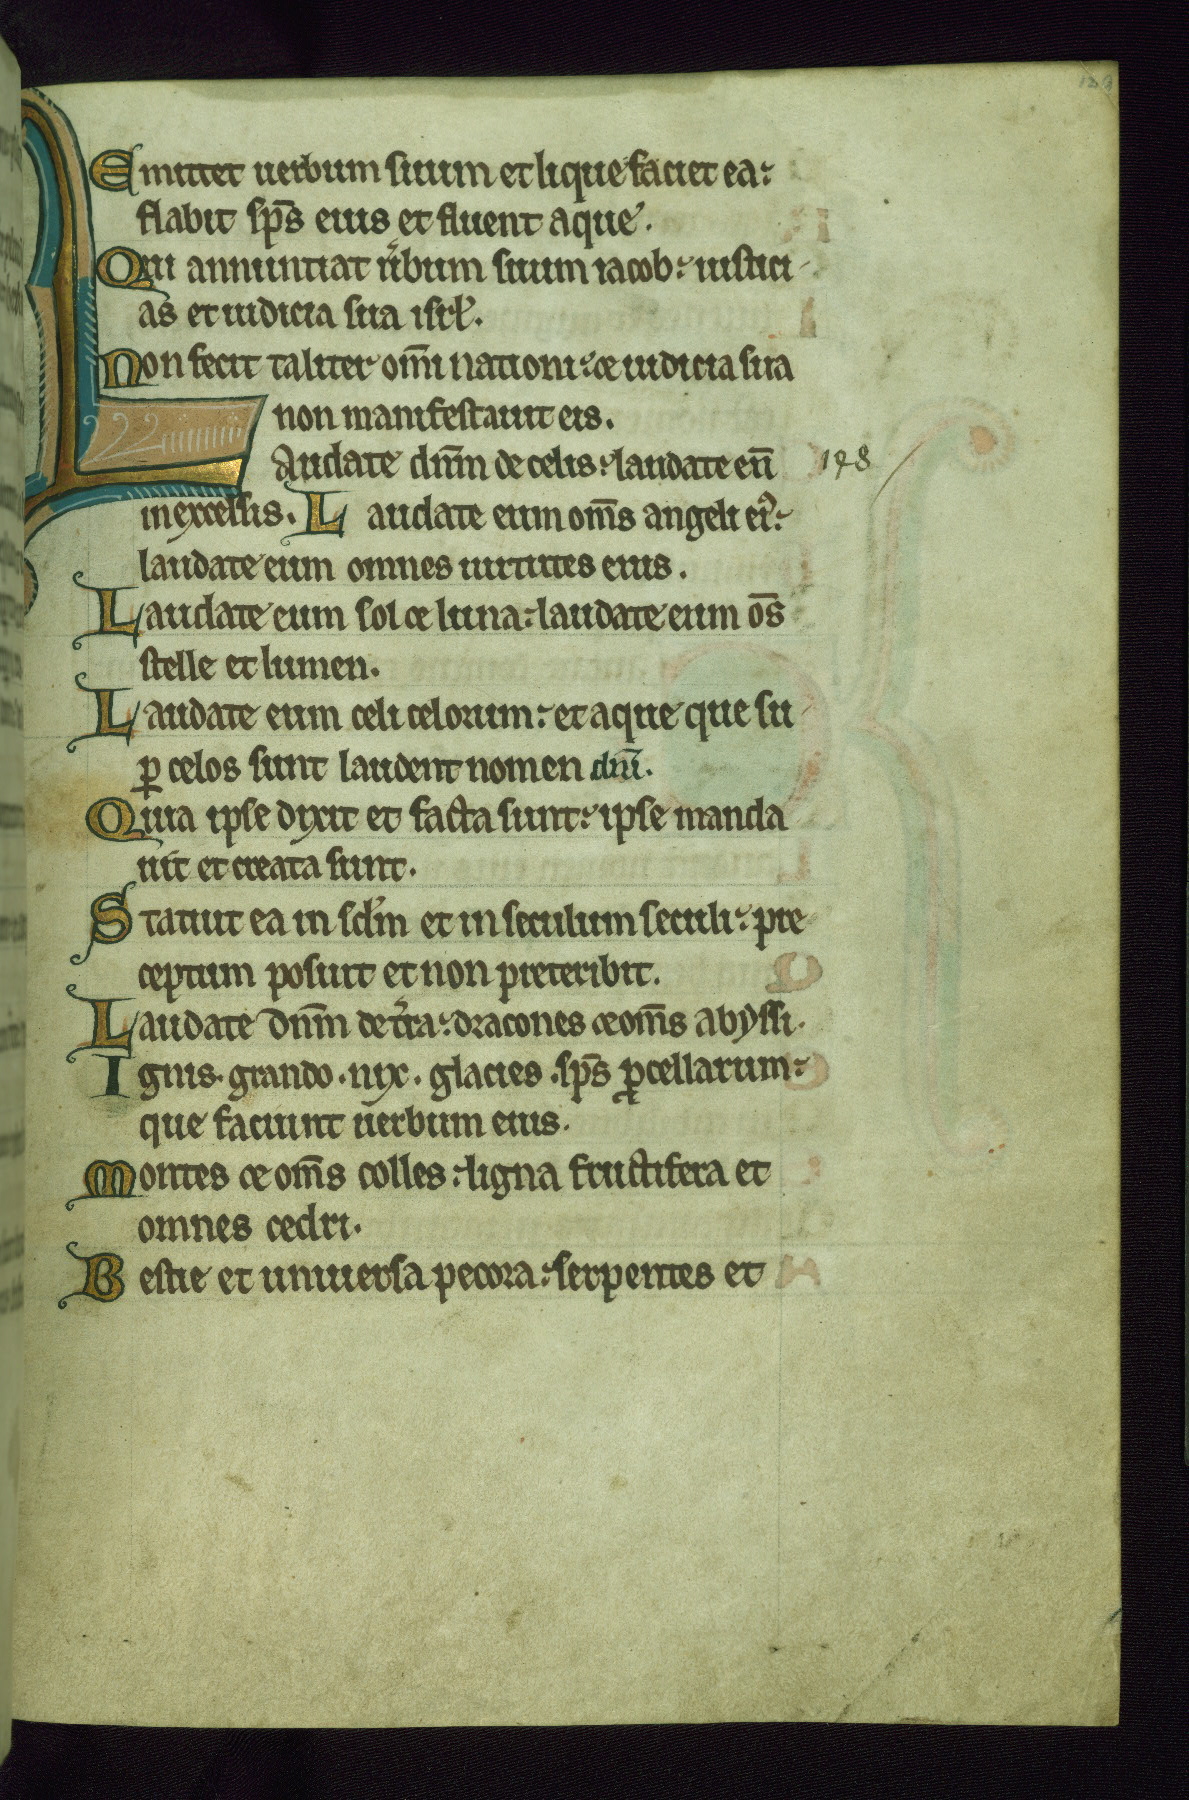 Emittet uerbum suum et lique faciet ea:
flabit sp̅s eius et fluent aque.
Qui annuntiat u͛bum suum iacob: iustici
as et iudicia sua isrl̅.
Non fecit taliter om̅i nationi: & iudicia sua
non manifestauit eis.
Laudate dn̅m de celis: laudate eu̅ 148
in excelsis. Laudate eum om̅s angeli ei᷒:
laudate eum omnes uirtutes eius.
Laudate eum sol & luna: laudate eum o̅s
stelle et lumen.
Laudate eum celi celorum: et aque que su
ꝑ celos sunt laudent nomen dn̅i.
Quia ipse dixit et facta sunt: ipse manda
uit et creata sunt.
Statuit ea in scl̅m et in seculum seculi: pre
ceptum posuit et non preteribit.
Laudate dn̅m de t͛ra: dracones & om̅s abyssi.
Ignis. grando. nix. glacies. sp̅s ꝓcellarum:
que faciunt uerbum eius.
Montes & om̅s colles: ligna fructifera et
omnes cedri.
Bestie et uniuersa pecora: serpentes et